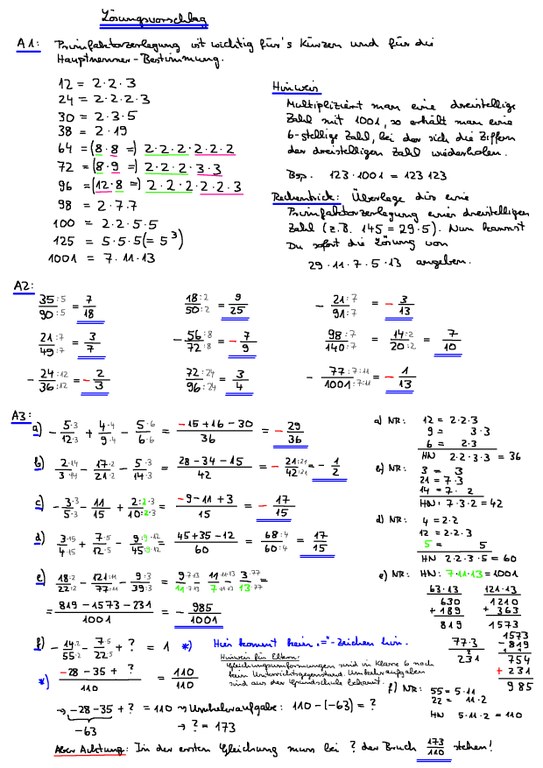 Lösungsvorschlag
A1: Primfaktorzerlegung ist wichtig für's Kürzen und für die
Hauptnenner-Bestimmung.
12 = 2·2·3
24 = 2·2·2·3
30 = 2·3·5
38 = 2·19
64 = (8·8 =) 2·2·2·2·2·2
72 = (8·9 =) 2·2·2·3·3
96 = (12·8 =) 2·2·2·2·2·3
98 = 2·7·7
100 = 2·2·5·5
125 = 5·5·5 (= 5³)
1001 = 7·11·13
Hinweis
Multipliziert man eine dreistellige
Zahl mit 1001, so erhält man eine
6-stellige Zahl, bei der sich die Ziffern
der dreistelligen Zahl wiederholen.
Bsp. 123·1001 = 123 123
Rechentrick: Überlege dir eine
Primfaktorzerlegung einer dreistelligen
Zahl (z.B. 145 = 29·5). Nun kannst
Du sofort die Lösung von
29·11·7·5·13 angeben.
A2:
35:5/90:5 = 7/18 18:2/50:2 = 9/25 - 21:7/91:7 = - 3/13
21:7/49:7 = 3/7 - 56:8/72:8 = - 7/9 98:7/140:7 = 14:2/20:2 = 7/10
- 24:12/36:12 = - 2/3 72:24/96:24 = 3/4 - 77:7:11/1001:7:11 = - 1/13
A3:
a) - 5·3/12·3 + 4·4/9·4 - 5·6/6·6 = -15+16-30/36 = - 29/36
b) 2·14/3·14 - 17·2/21·2 - 5·3/14·3 = 28-34-15/42 = - 21:21/42:21 = - 1/2
c) - 3·3/5·3 - 11/15 + 2:2·3/10:2·3 = -9-11+3/15 = - 17/15
d) 3·15/4·15 + 7·5/12·5 - 9:9·12/45:9·12 = 45+35-12/60 = 68:4/60:4 = 17/15
e) 18:2/22:2 - 121:11/77:11 - 9:3/39:3 = 9·7·13/11·7·13 - 11·11·13/7·11·13 - 3·77/13·77 =
= 819-1573-231/1001 = - 985/1001
f) - 14·2/55·2 - 7·5/22·5 + ? = 1 *) Hier kommt kein "="-Zeichen hin.
*) -28-35+ ?/110 = 110/110
Hinweis für Eltern:
Gleichungsumformungen sind in Klasse 6 noch
kein Unterrichtsgegenstand. Umkehraufgaben
sind aus der Grundschule bekannt.
→ -28-35 + ? = 110 → Umkehraufgabe: 110 - (-63) = ?
-63 → ? = 173
Aber Achtung: In der ersten Gleichung muss bei ? der Bruch 173/110 stehen!
a) NR: 12 = 2·2·3
9 = 3·3
6 = 2·3
HN 2·2·3·3 = 36
b) NR: 3 = 3
21 = 7·3
14 = 7·2
HN: 7·3·2 = 42
d) NR: 4 = 2·2
12 = 2·2·3
5 = 5
HN 2·2·3·5 = 60
e) NR: HN: 7·11·13 = 1001
63·13 121·13
630 1210
+ 189 + 363
819 1573
77·3
231
1573
- 819
754
+ 231
985
f) NR: 55 = 5·11
22 = 11·2
HN 5·11·2 = 110